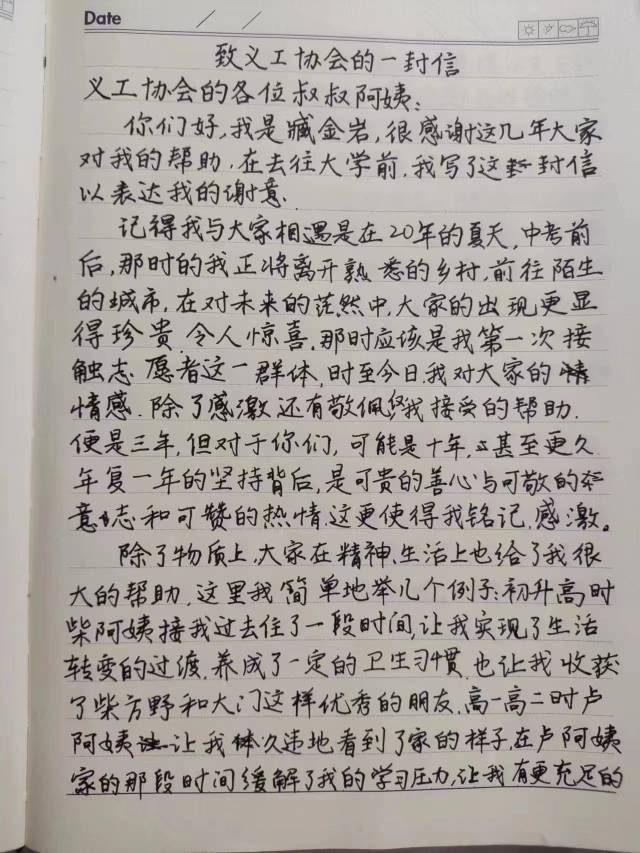 Date / /
致义工协会的一封信
义工协会的各位叔叔阿姨：
你们好，我是臧金岩，很感谢这几年大家
对我的帮助．在去往大学前，我写了这封信
以表达我的谢意．
记得我与大家相遇是在20年的夏天，中考前
后，那时的我正将离开熟悉的乡村，前往陌生
的城市，在对未来的茫然中，大家的出现更显
得珍贵，令人惊喜．那时应该是我第一次接
触志愿者这一群体，时至今日，我对大家的
情感．除了感激还有敬佩，我接受的帮助．
便是三年，但对于你们，可能是十年，甚至更久
年复一年的坚持背后，是可贵的善心与可敬的
意志和可赞的热情．这更使得我铭记、感激。
除了物质上，大家在精神、生活上也给了我很
大的帮助．这里我简单地举几个例子：初升高时
柴阿姨接我过去住了一段时间，让我实现了生活
转变的过渡，养成了一定的卫生习惯，也让我收获
了柴方野和大门这样优秀的朋友．高一高二时卢
阿姨让我久违地看到了家的样子，在卢阿姨
家的那段时间缓解了我的学习压力，让我有更充足的